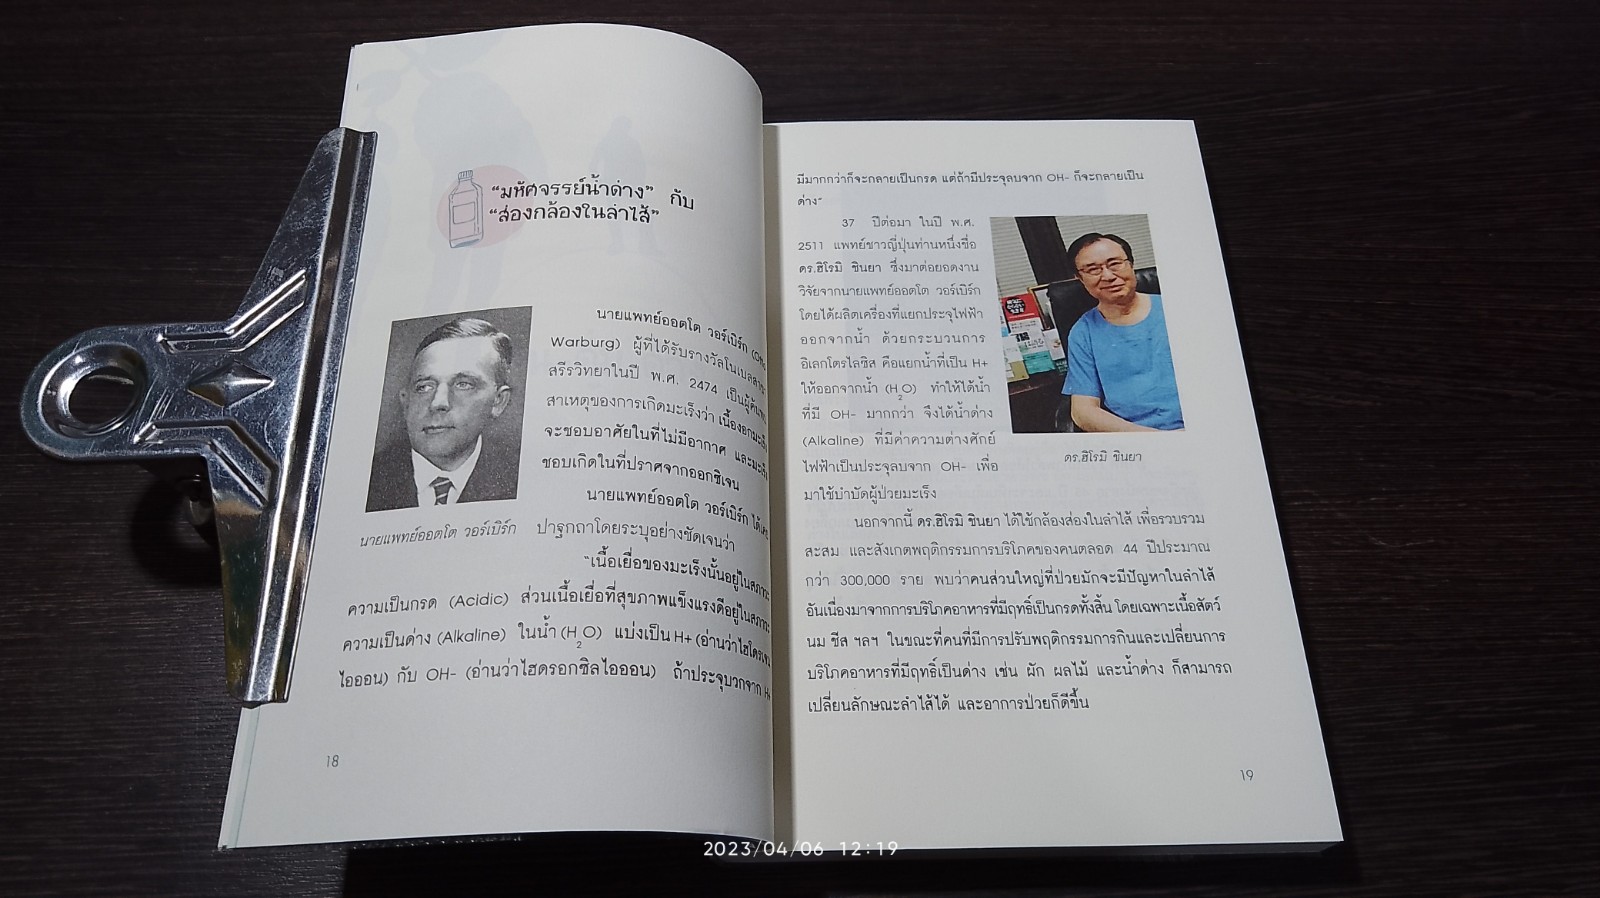 “มหัศจรรย์น้ำด่าง” กับ
“ส่องกล้องในลำไส้”
นายแพทย์ออตโต วอร์เบิร์ก
Warburg) ผู้ที่ได้รับรางวัลโนเบล
สรีรวิทยาในปี พ.ศ. 2474 เป็น
สาเหตุของการเกิดมะเร็งว่า เนื้องอก
จะชอบอาศัยในที่ไม่มีอากาศ และ
ชอบเกิดในที่ปราศจากออกซิเจน
นายแพทย์ออตโต วอร์เบิร์ก
นายแพทย์ออตโต วอร์เบิร์ก
ปาฐกถาโดยระบุอย่างชัดเจนว่า
“เนื้อเยื่อของมะเร็งนั้นอยู่ในสภาวะ
ความเป็นกรด (Acidic) ส่วนเนื้อเยื่อที่สุขภาพแข็งแรงดีอยู่ในสภาวะ
ความเป็นด่าง (Alkaline) ในน้ำ (H2O) แบ่งเป็น H+ (อ่านว่าไฮโดรเจน
ไอออน) กับ OH- (อ่านว่าไฮดรอกซิลไอออน) ถ้าประจุบวกจาก H+
18
มีมากกว่าก็จะกลายเป็นกรด แต่ถ้ามีประจุลบจาก OH- ก็จะกลายเป็น
ด่าง”
37 ปีต่อมา ในปี พ.ศ.
2511 แพทย์ชาวญี่ปุ่นท่านหนึ่งชื่อ
ดร.ฮิโรมิ ชินยา ซึ่งมาต่อยอดงาน
วิจัยจากนายแพทย์ออตโต วอร์เบิร์ก
โดยได้ผลิตเครื่องที่แยกประจุไฟฟ้า
ออกจากน้ำ ด้วยกระบวนการ
อิเลกโตรไลซิส คือแยกน้ำที่เป็น H+
ให้ออกจากน้ำ (H2O) ทำให้ได้น้ำ
ที่มี OH- มากกว่า จึงได้น้ำด่าง
(Alkaline) ที่มีค่าความต่างศักย์
ไฟฟ้าเป็นประจุลบจาก OH- เพื่อ
มาใช้บำบัดผู้ป่วยมะเร็ง
ดร.ฮิโรมิ ชินยา
นอกจากนี้ ดร.ฮิโรมิ ชินยา ได้ใช้กล้องส่องในลำไส้ เพื่อรวบรวม
สะสม และสังเกตพฤติกรรมการบริโภคของคนตลอด 44 ปีประมาณ
กว่า 300,000 ราย พบว่าคนส่วนใหญ่ที่ป่วยมักจะมีปัญหาในลำไส้
อันเนื่องมาจากการบริโภคอาหารที่มีฤทธิ์เป็นกรดทั้งสิ้น โดยเฉพาะเนื้อสัตว์
นม ชีส ฯลฯ ในขณะที่คนที่มีการปรับพฤติกรรมการกินและเปลี่ยนการ
บริโภคอาหารที่มีฤทธิ์เป็นด่าง เช่น ผัก ผลไม้ และน้ำด่าง ก็สามารถ
เปลี่ยนลักษณะลำไส้ได้ และอาการป่วยก็ดีขึ้น
19
2023/04/06 12:19